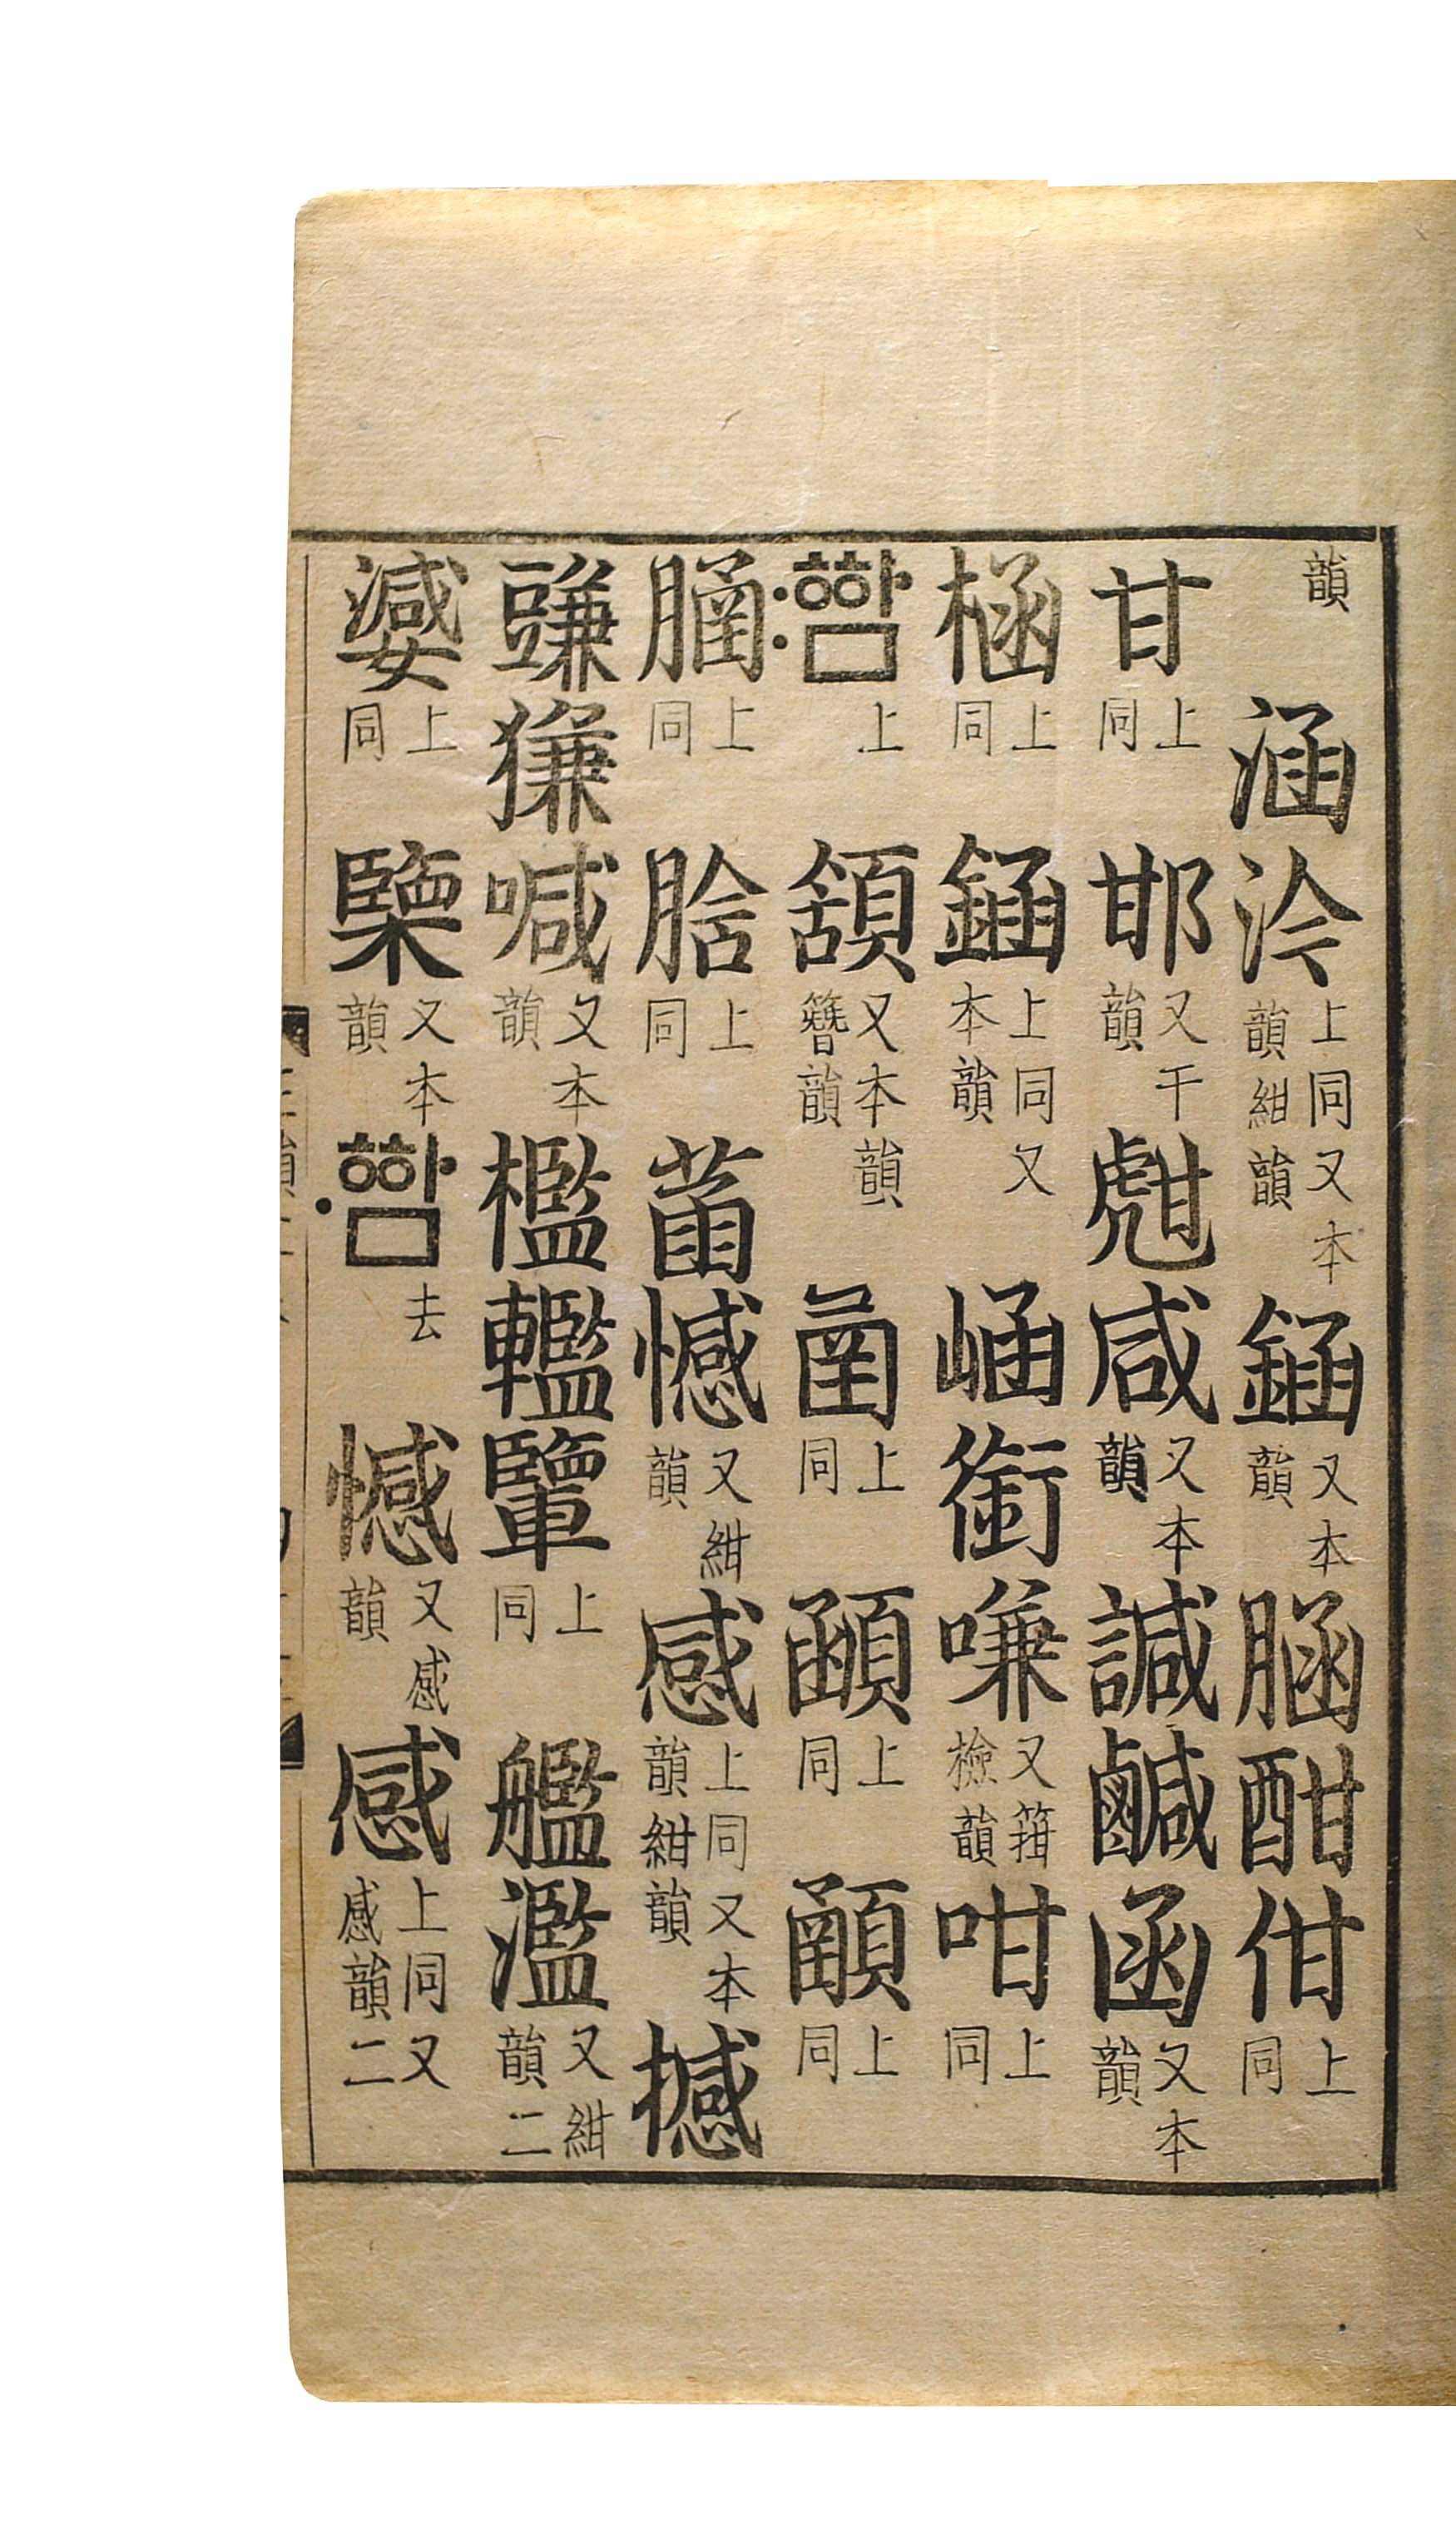 韻 涵浛上同又本韻紺韻 𨨱又本韻 𦛜酣佄上同
甘上同 邯又干韻 甝咸又本韻 諴鹹函又本韻
㮀上同 𨨱上同又本韻 崡銜嗛又箝檢韻 咁上同
ᅘᅡᆷ〯上 頷又本韻簪韻 𠧴上同 顄上同 顄上同
上同 上同 菡憾又紺韻 感上同又本韻紺韻 撼
豏㺌喊又本韻 檻轞𨎹上同 艦濫又紺韻二
上同 又本韻 ᅘᅡᆷ〮去 憾又感韻 感上同又感韻二